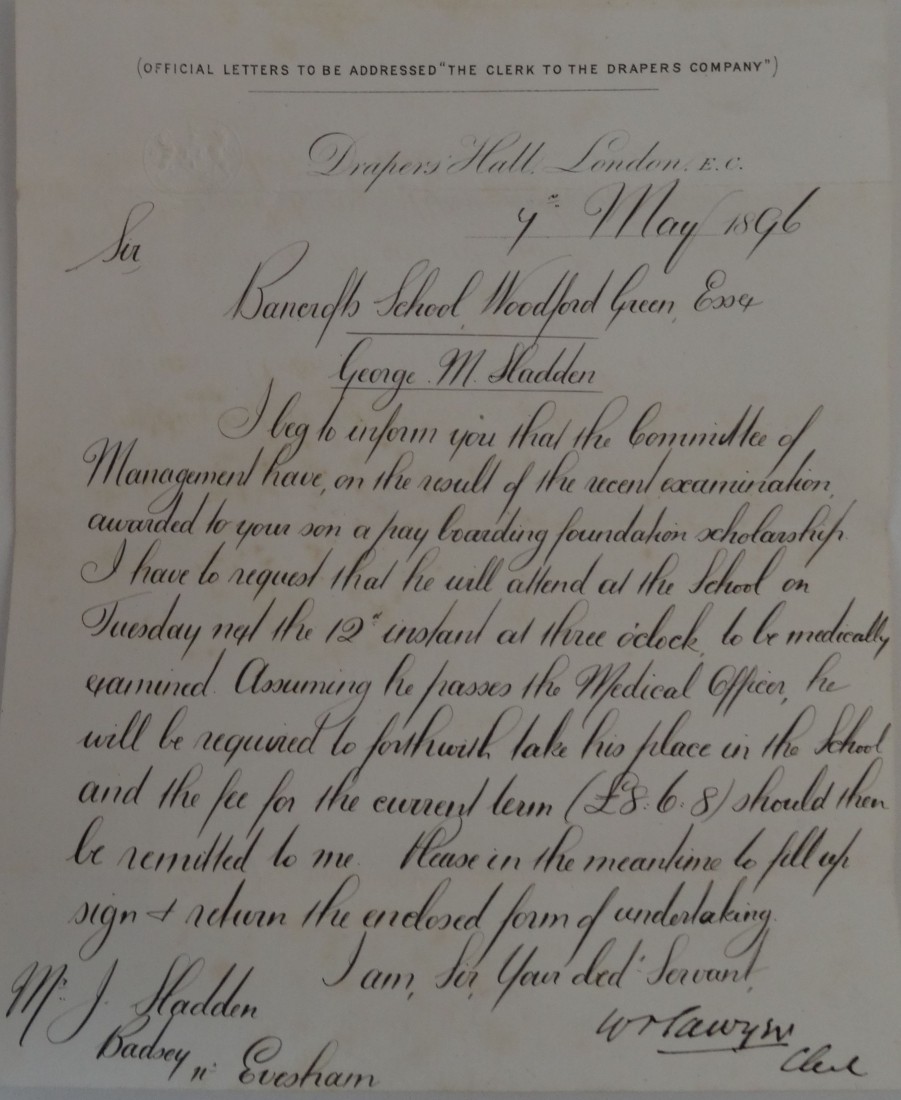 (OFFICIAL LETTERS TO BE ADDRESSED "THE CLERK TO THE DRAPERS COMPANY")
Drapers' Hall, London, E.C.
7th May 1896
Sir,
Bancroft's School, Woodford Green, Essex
George. M. Sladden
I beg to inform you that the Committee of
Management have, on the result of the recent examination,
awarded to your son a pay boarding foundation scholarship.
I have to request that he will attend at the School on
Tuesday next the 12th instant at three o'clock, to be medically
examined. Assuming he passes the Medical Officer, he
will be required to forthwith take his place in the School
and the fee for the current term (£8. 6. 8) should then
be remitted to me. Please in the meantime to fill up
sign & return the enclosed form of undertaking.
I am, Sir, Your obedt Servant,
W P Sawyer
Clerk
Mr J. Sladden
Badsey, nr Evesham